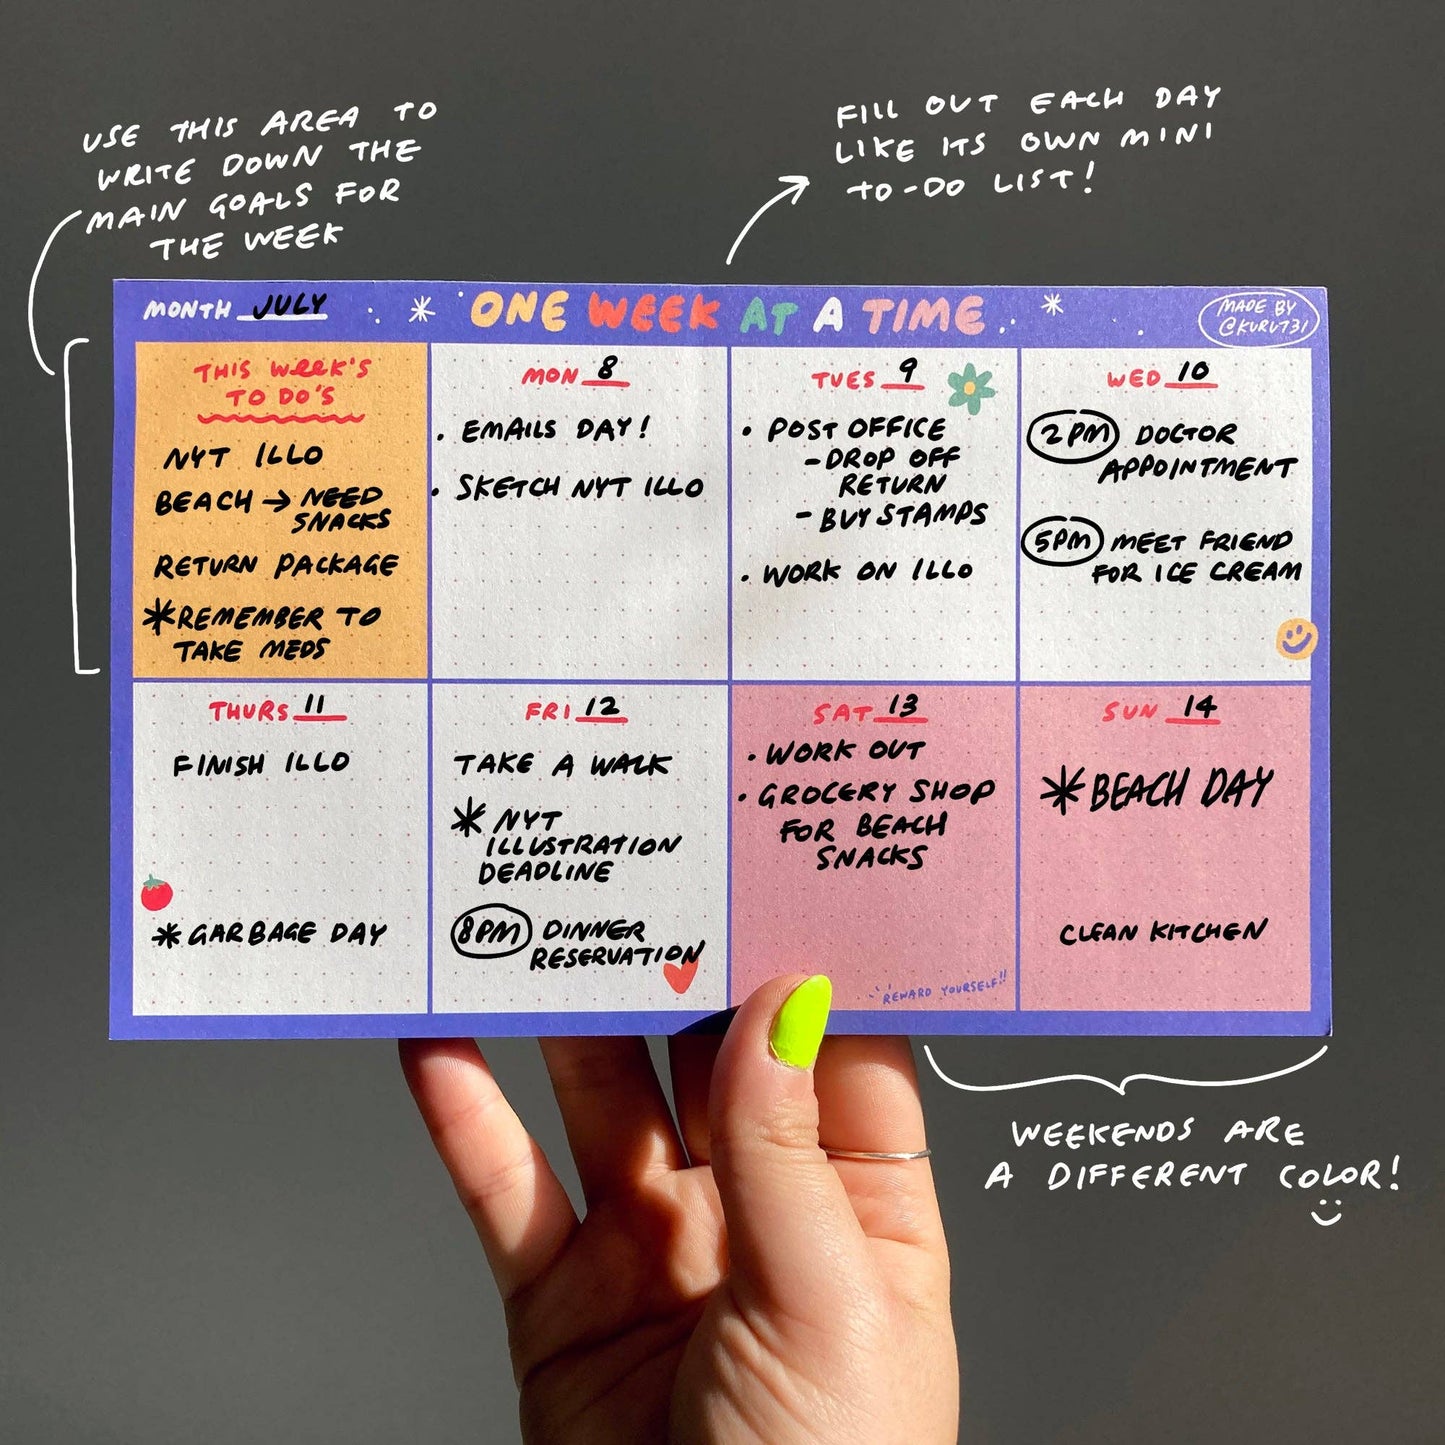 USE THIS AREA TO
WRITE DOWN THE
MAIN GOALS FOR
THE WEEK
FILL OUT EACH DAY
LIKE ITS OWN MINI
TO-DO LIST!
MONTH JULY
ONE WEEK AT A TIME
MADE BY
@KURU731
THIS WEEK'S
TO DO'S
NYT ILLO
BEACH → NEED
SNACKS
RETURN PACKAGE
*REMEMBER TO
TAKE MEDS
MON 8
• EMAILS DAY!
• SKETCH NYT ILLO
TUES 9
• POST OFFICE
- DROP OFF
RETURN
- BUY STAMPS
• WORK ON ILLO
WED 10
2PM DOCTOR
APPOINTMENT
5PM MEET FRIEND
FOR ICE CREAM
THURS 11
FINISH ILLO
* GARBAGE DAY
FRI 12
TAKE A WALK
* NYT
ILLUSTRATION
DEADLINE
8PM DINNER
RESERVATION
SAT 13
• WORK OUT
• GROCERY SHOP
FOR BEACH
SNACKS
REWARD YOURSELF!!
SUN 14
* BEACH DAY
CLEAN KITCHEN
WEEKENDS ARE
A DIFFERENT COLOR!